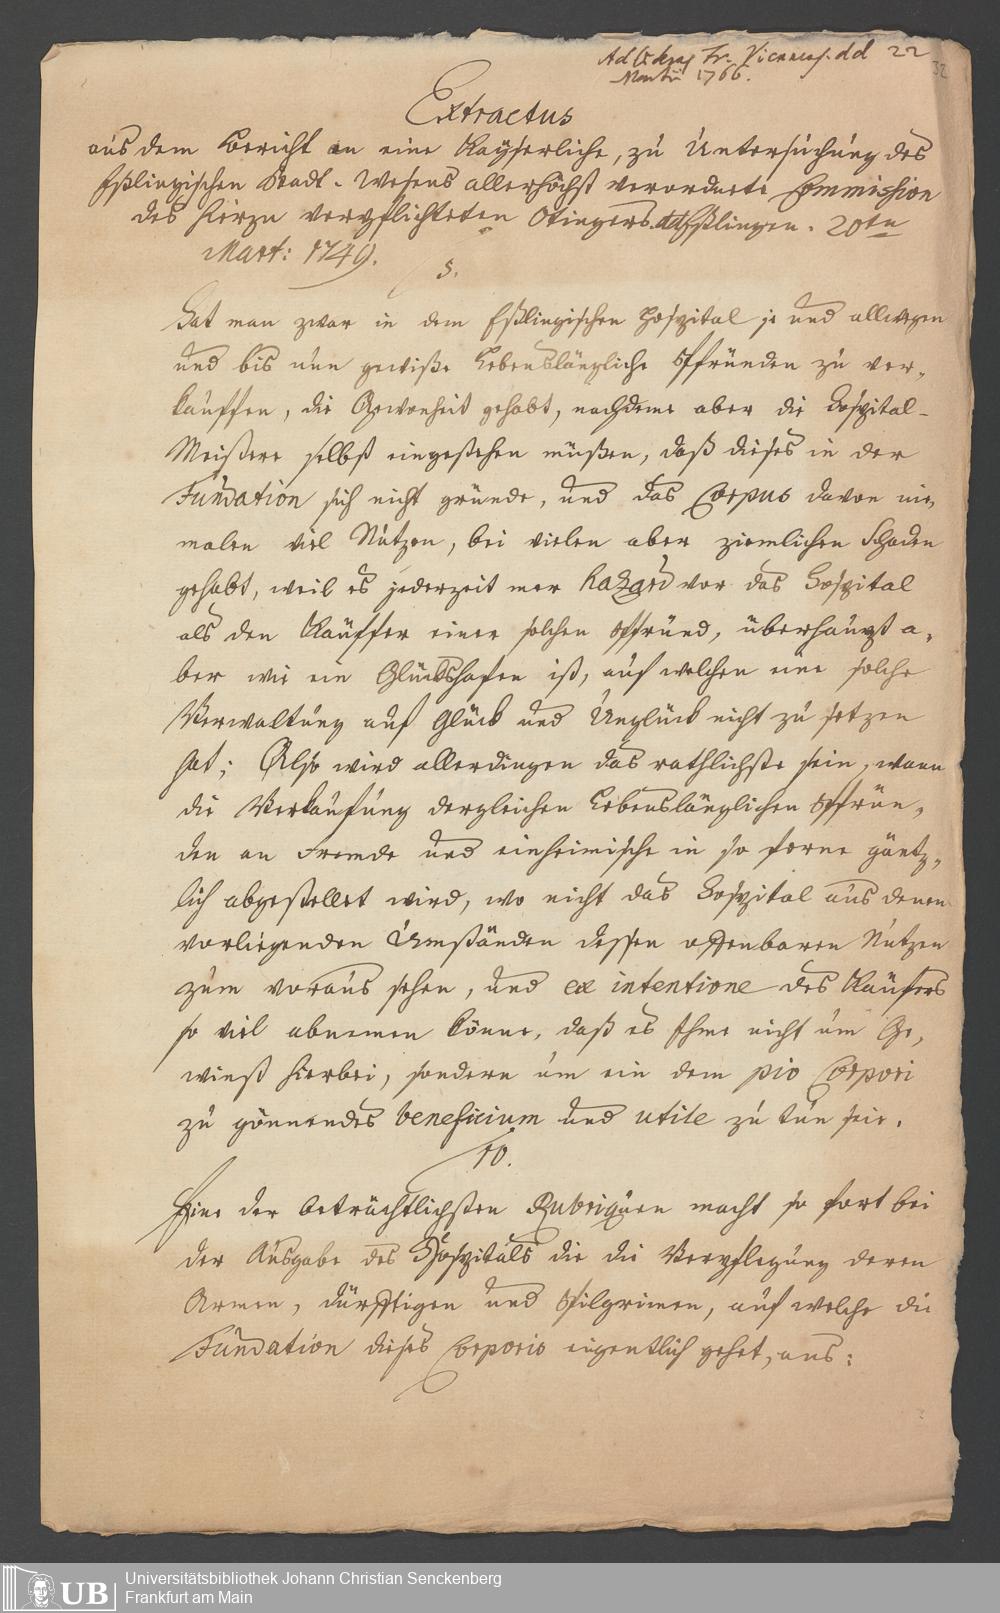 Martii 1766. 22
32
Extractus
aus dem Bericht an eine Kayserliche, zu Untersuchung des
Eßlingischen Stadt-Wesens allerhöchst verordnete Commission
des hierzu verpflichteten Otingers. dd Eßlingen. 20ten
Mart: 1749.
5.
Hat man zwar in dem Eßlingischen Hospital je und allwegen
und bis nun gewiße Lebenslängliche Pfründen zu ver-
kauffen, die Gewonheit gehabt, nachdeme aber die Hospital-
Meistere selbst eingestehen müßen, daß dieses in der
Fundation sich nicht gründe, und das Corpus davon nie-
malen viel Nutzen, bei vielen aber ziemlichen Schaden
gehabt, weil es jederzeit mer hazard vor das Hospital
als den Kauffer einer solchen Pfründ, überhaupt a-
ber wie ein Glückshafen ist, auf welchen eine solche
Verwaltung auf Glück und Unglück nicht zu setzen
hat; Also wird allerdingen das rathlichste sein, wann
die Verkaufung dergleichen Lebenslänglichen Pfrün-
den an Fremde und einheimische in so ferne gäntz-
lich abgestellet wird, wo nicht das Hospital aus denen
vorliegenden Umständen dessen offenbaren Nutzen
zum voraus sehen, und ex intentione des Kaufers
so viel abnemen könne, daß es Ihme nicht um Ge-
winst hierbei, sondern um ein dem pio Corpori
zu gönnendes beneficium und utile zu tun seie.
10.
Eine der beträchtlichsten Rubriquen macht so fort bei
der Ausgabe des Hospitals die die Verpflegung deren
Armen, dürfftigen und Pilgrimen, auf welche die
Fundation dieses Corporis eigentlich gehet, aus:
UB Universitätsbibliothek Johann Christian Senckenberg
Frankfurt am Main